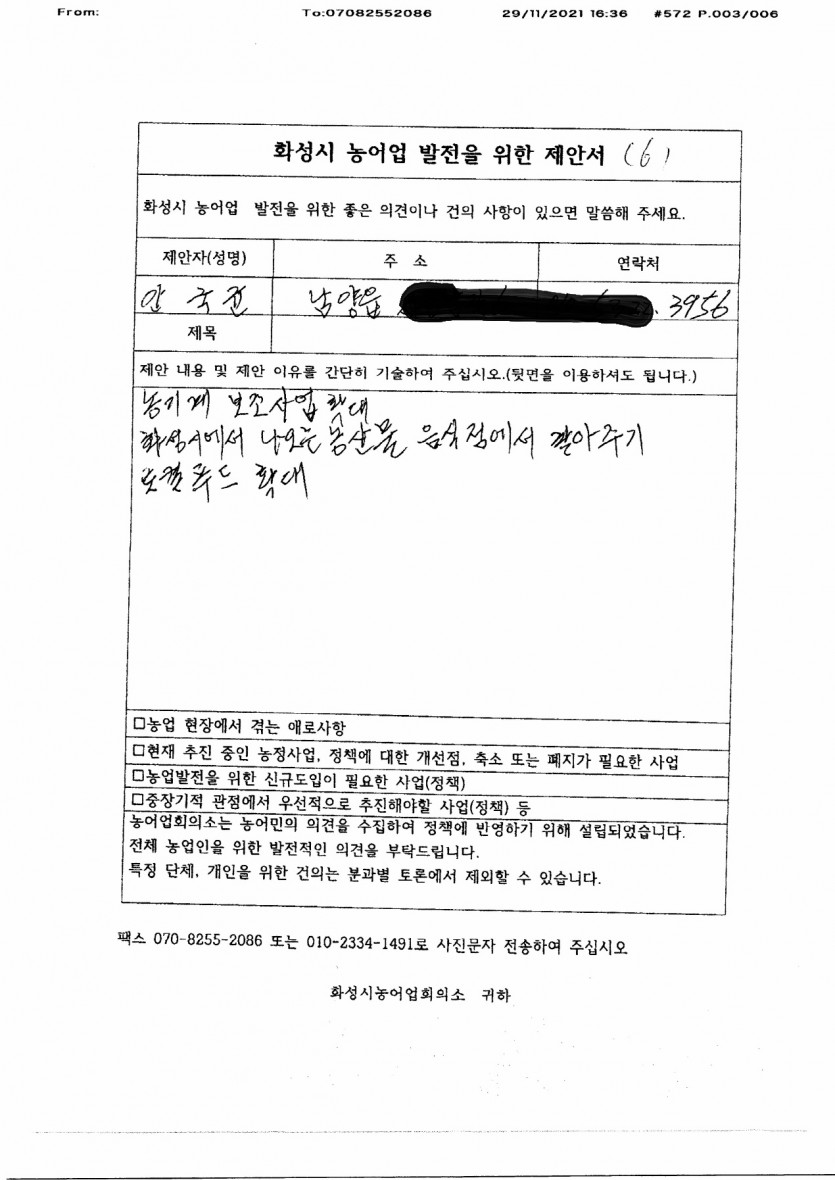 From: To:07082552086 29/11/2021 16:36 #572 P.003/006
화성시 농어업 발전을 위한 제안서 (6)
화성시 농어업 발전을 위한 좋은 의견이나 건의 사항이 있으면 말씀해 주세요.
제안자(성명) 주 소 연락처
안 국 남양읍 3956
제목
제안 내용 및 제안 이유를 간단히 기술하여 주십시오.(뒷면을 이용하셔도 됩니다.)
농기계 보조사업 확대
화성시에서 나오는 농산물 음식점에서 팔아주기
로컬푸드 확대
□농업 현장에서 겪는 애로사항
□현재 추진 중인 농정사업, 정책에 대한 개선점, 축소 또는 폐지가 필요한 사업
□농업발전을 위한 신규도입이 필요한 사업(정책)
□중장기적 관점에서 우선적으로 추진해야할 사업(정책) 등
농어업회의소는 농어민의 의견을 수집하여 정책에 반영하기 위해 설립되었습니다.
전체 농업인을 위한 발전적인 의견을 부탁드립니다.
특정 단체, 개인을 위한 건의는 분과별 토론에서 제외할 수 있습니다.
팩스 070-8255-2086 또는 010-2334-1491로 사진문자 전송하여 주십시오
화성시농어업회의소 귀하